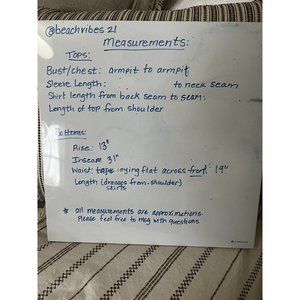 @beachvibes21
Measurements:
Tops:
Bust/chest: armpit to armpit
Sleeve Length: to neck seam
Shirt length from back seam to seam:
Length of top from shoulder
Bottoms:
Rise: 13"
Inseam 31"
Waist: tape laying flat across front. 19"
Length (dresses from shoulder)
skirts
* all measurements are approximations.
Please feel free to msg with questions